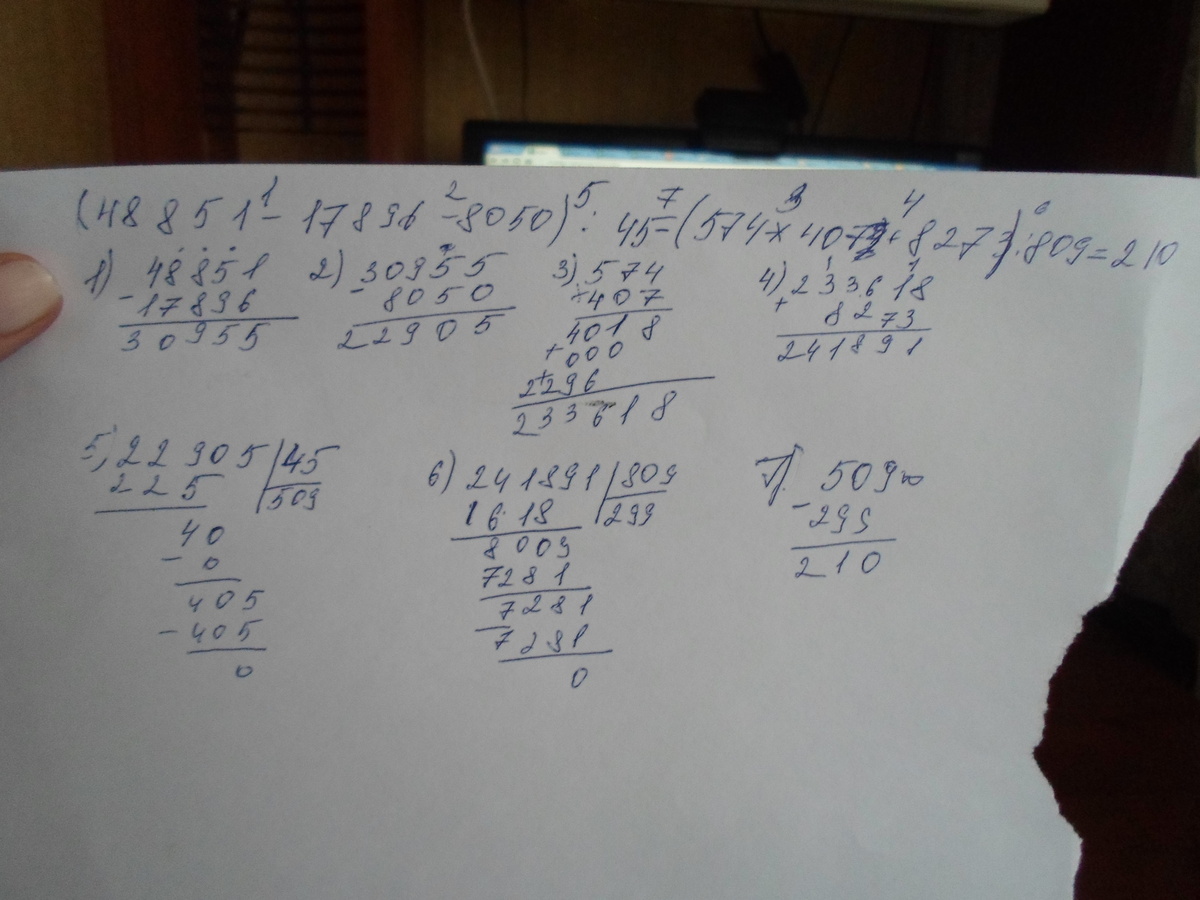 (48851 - 17896 - 8050) : 45 - (574 × 407 + 8273) : 809 = 210
1) 48851
- 17896
30955
2) 30955
- 8050
22905
3) 574
× 407
4018
+ 000
+ 2296
233618
4) 233618
+ 8273
241891
5) 22905 | 45
225 | 509
40
- 0
405
- 405
0
6) 241891 | 809
1618 | 299
8009
7281
7281
- 7281
0
7) 509
- 299
210